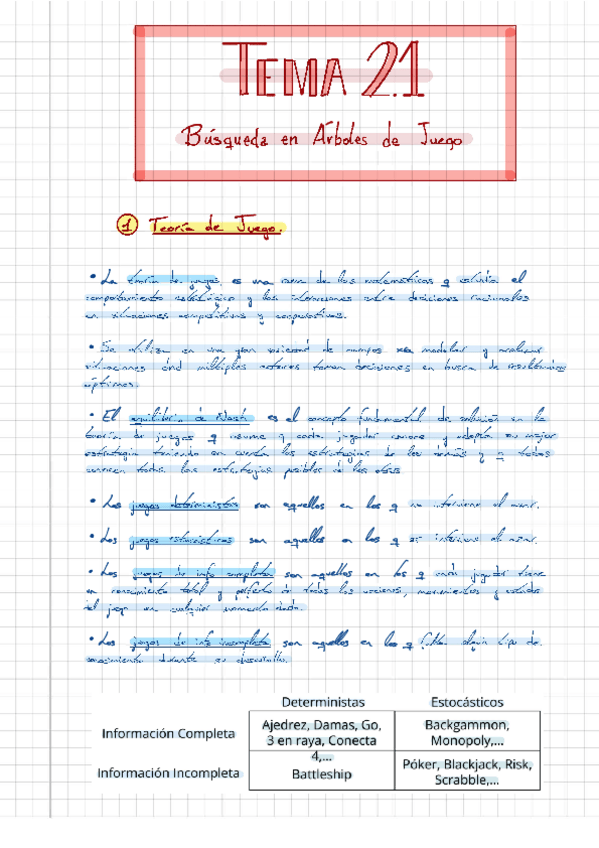 TEMA 2.1
Búsqueda en Árboles de Juego
1 Teoría de Juego.
• La teoría de juegos es una rama de las matemáticas q estudia el
comportamiento estratégico y las interacciones entre decisiones racionales
en situaciones competitivas y cooperativas.
• Se utiliza en una gran variedad de campos para modelar y analizar
situaciones dnd múltiples actores toman decisiones en busca de resultados
óptimos.
• El equilibrio de Nash es el concepto fundamental de solución en la
teoría de juegos q asume q cada jugador conoce y adopta su mejor
estrategia teniendo en cuenta las estrategias de los demás y q todos
conocen todas las estrategias posibles de los otros.
• Los juegos deterministas son aquellos en los q no interviene el azar.
• Los juegos estocásticos son aquellos en los q sí interviene el azar.
• Los juegos de info completa son aquellos en los q cada jugador tiene
un conocimiento total y perfecto de todas las acciones, movimientos y estados
del juego en cualquier momento dado.
• Los juegos de info incompleta son aquellos en los q falta algún tipo de
conocimiento durante su desarrollo.
Deterministas Estocásticos
Información Completa Ajedrez, Damas, Go, 3 en raya, Conecta 4,... Backgammon, Monopoly,...
Información Incompleta Battleship Póker, Blackjack, Risk, Scrabble,...